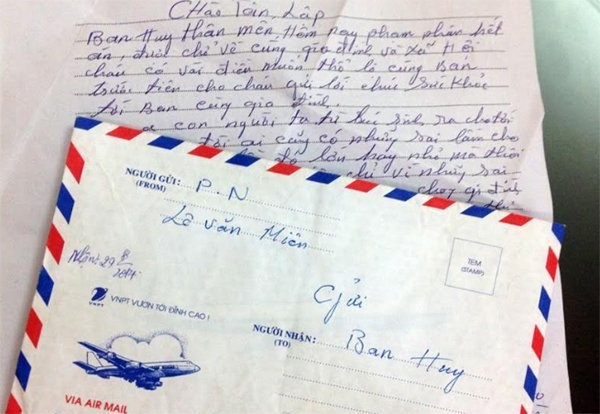 CHào Tân Lập
Ban Huy thân mến Hôm nay phạm phán hết
án, được chở về cùng gia đình và xã Hội
cháu có vài điều muốn thổ lộ cùng Ban
trước tiên cho cháu gửi lời chúc sức Khỏe
tới Ban cùng gia đình.
con người ta từ lúc sinh ra cho tới
ai cũng có những sai lầm cho
lớn hay nhỏ mà thôi
chỉ vì những sai
gia đình
NGƯỜI GỬI:
(FROM)
P.N
Lê Văn Miên
TEM
(STAMP)
Nhận: 29/8/2014
VNPT
VNPT VƯƠN TỚI ĐỈNH CAO !
Gửi
NGƯỜI NHẬN:
(TO)
Ban Huy
VIA AIR MAIL